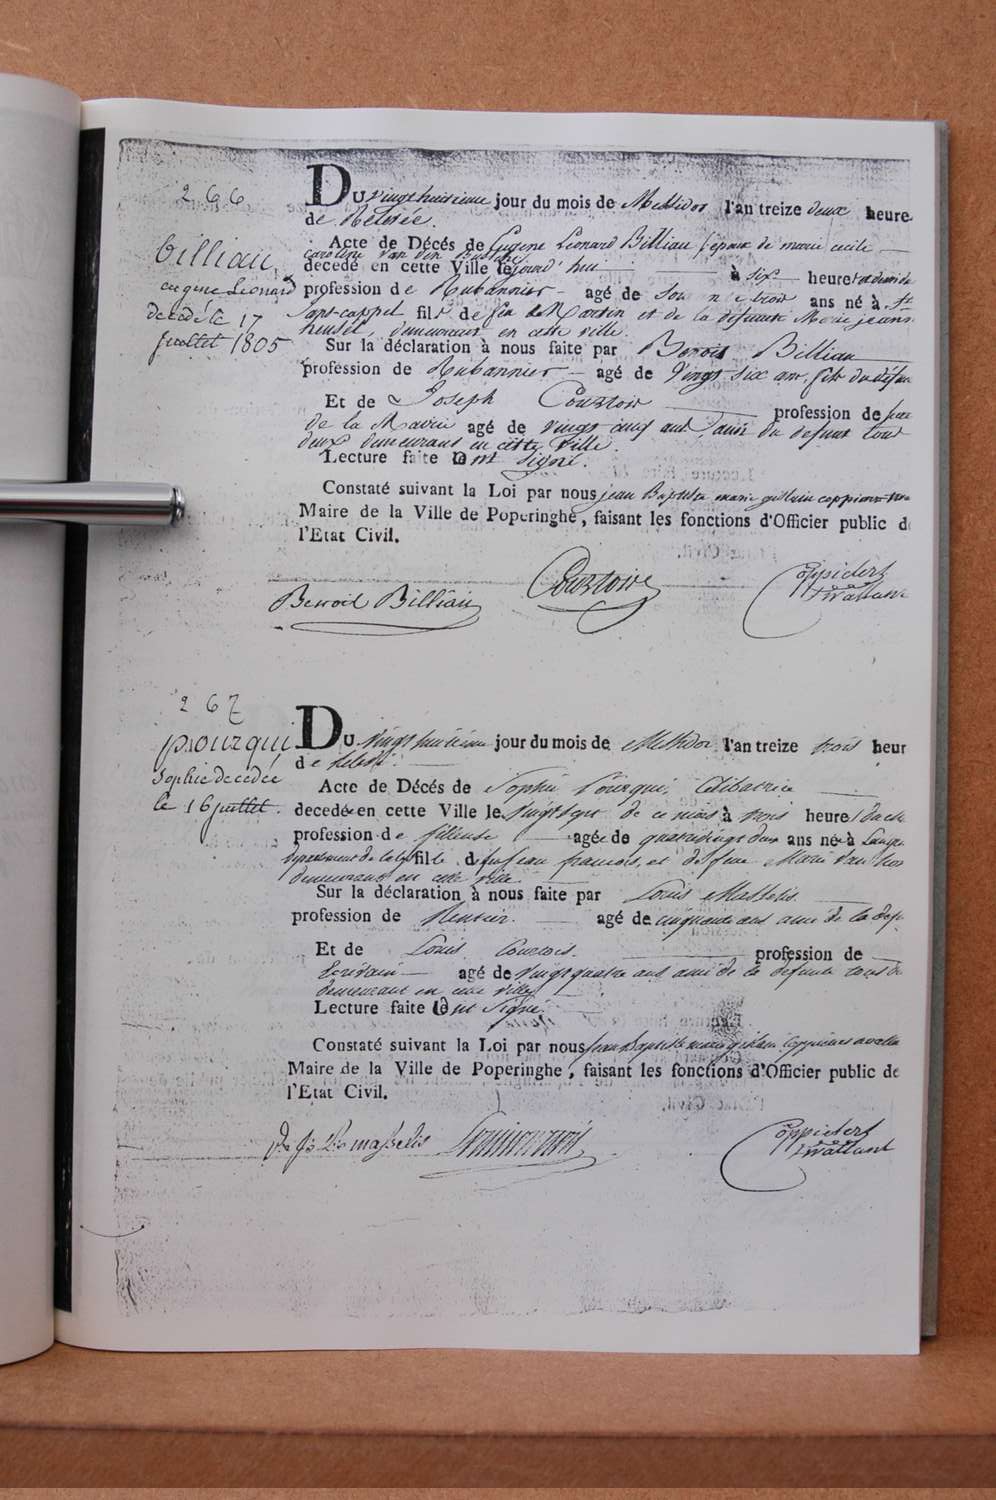 266
Billiau,
eugene Leonard
decedé le 17
juillet 1805
Du vingt huitieme jour du mois de Messidor l'an treize deux heure
de Relevée.
Acte de Décés de Eugene Leonard Billiau Epoux de marie cecile
caroline Van den
decedé en cette Ville le jourd'hui à six heure
profession de Rubannier agé de ans né à St
Jans-cappel fils de feu Martin et de la défunte Marie jeanne
demeurant en cette ville.
Sur la déclaration à nous faite par Benoit Billiau
profession de Rubannier agé de vingt six ans, fils du défun
Et de Joseph Courtois profession de
de la Mairie agé de vingt cinq ans ami du defunt tous
deux demeurant en cette Ville.
Lecture faite ont signé.
Constaté suivant la Loi par nous jean Baptiste marie
Maire de la Ville de Poperinghe, faisant les fonctions d'Officier public d
l'Etat Civil.
Benoit Billiau Courtois
267
pourqui
Sophie decedée
le 16 juillet.
Du vingt huitieme jour du mois de Messidor l'an treize trois heur
de Relevé.
Acte de Décés de Sophie Pourqui, Celibatrice
decedée en cette Ville le vingt sept de ce mois à trois heure
profession de fileuse agée de quatrevingt deux ans née à
departement de la Lys fille de feu jean francois, et de feue Marie
demeurant en cette ville
Sur la déclaration à nous faite par Louis Masselis
profession de Rentier. agé de cinquante ans ami de la
Et de Louis Courtois profession de
Ecrivain agé de vingt quatre ans ami de la defunte tous
demeurant en cette ville
Lecture faite ont signé.
Constaté suivant la Loi par nous jean Baptiste marie
Maire de la Ville de Poperinghe, faisant les fonctions d'Officier public de
l'Etat Civil.
masselis